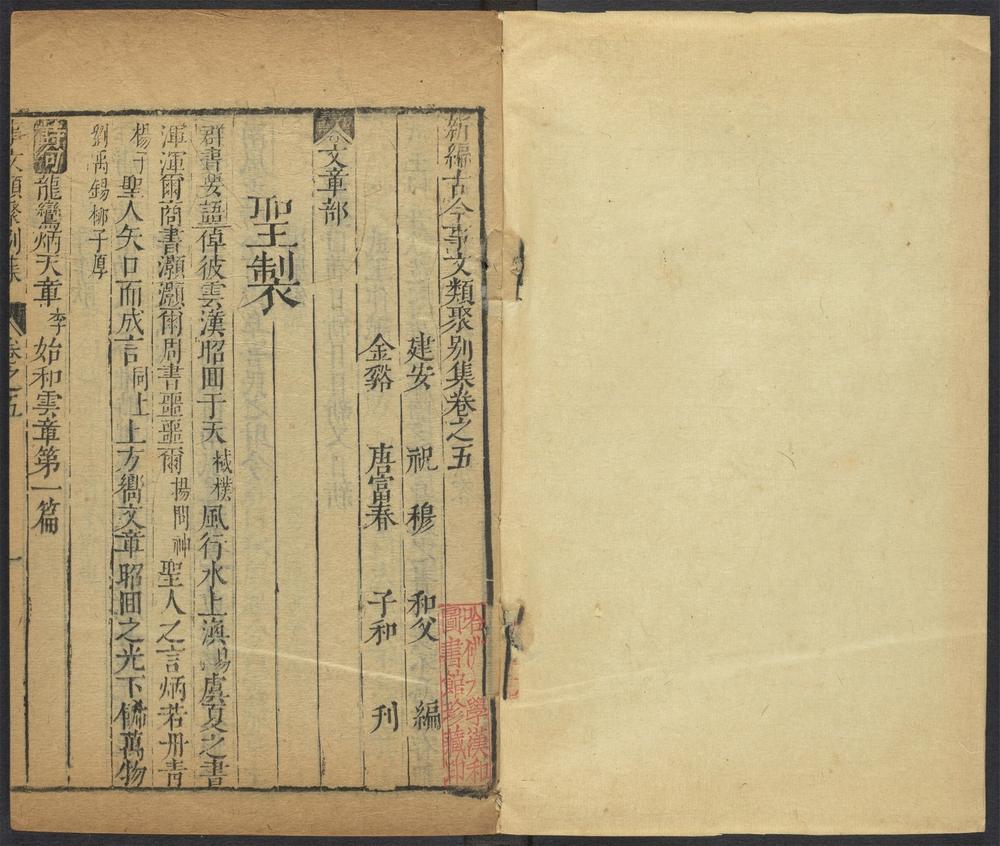 新編古今事文類聚別集卷之五
建安 祝 穆 和父 編
金谿 唐富春 子和 刊
文章部
聖製
群書要語倬彼雲漢昭囬于天棫樸風行水上渙易虞夏之書
渾渾爾商書灝灝爾周書噩噩爾揚問神聖人之言炳若丹青
楊子聖人矢口而成言同上上方嚮文章昭囬之光下飾萬物
劉禹錫柳子厚
詩詞龍鸞炳天章李始和雲章第一篇
事文類聚別集 卷之五 一
哈佛大學漢和
圖書館珍藏印